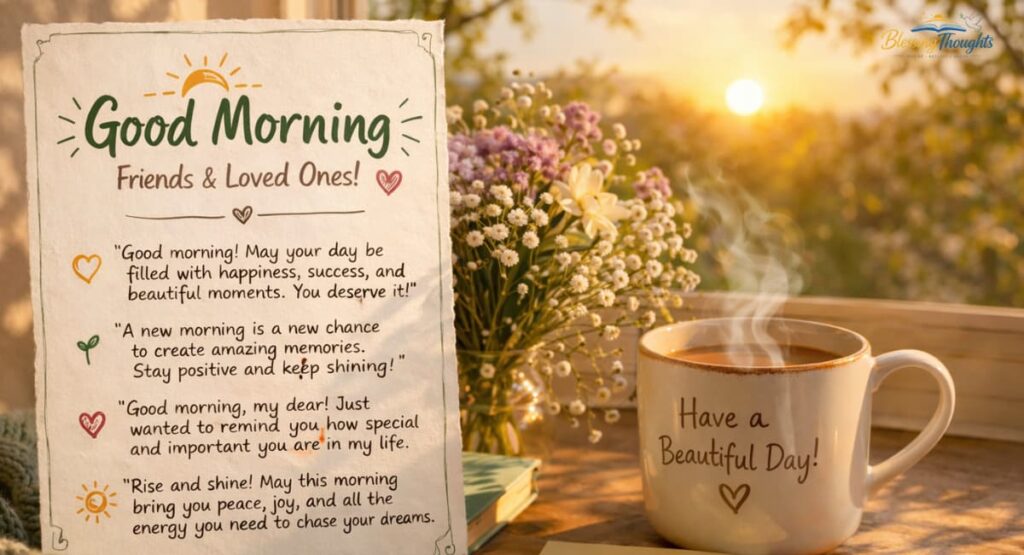 Good Morning
Friends & Loved Ones!
"Good morning! May your day be
filled with happiness, success, and
beautiful moments. You deserve it!"
"A new morning is a new chance
to create amazing memories.
Stay positive and keep shining!"
"Good morning, my dear! Just
wanted to remind you how special
and important you are in my life.
"Rise and shine! May this morning
bring you peace, joy, and all the
energy you need to chase your dreams.
Blessing Thoughts
Have a
Beautiful Day!